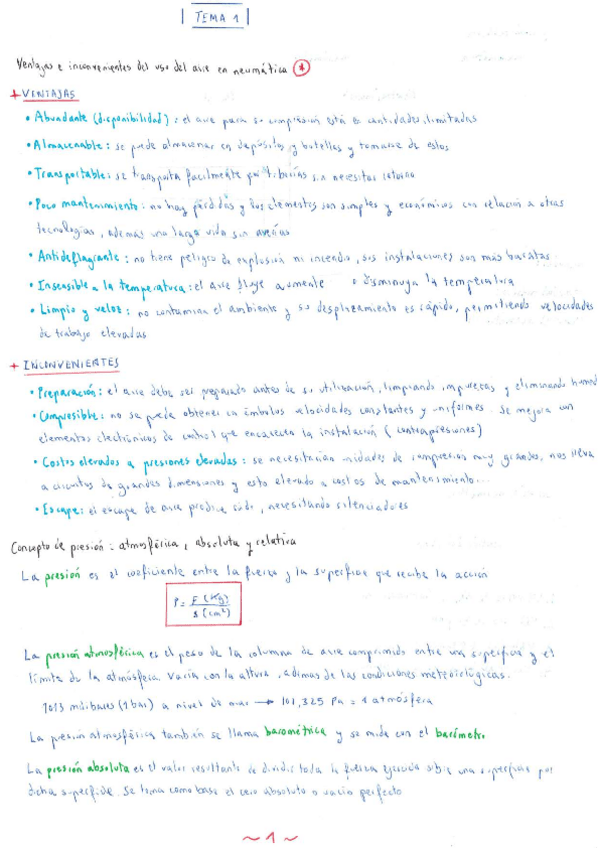 TEMA 1
Ventajas e inconvenientes del uso del aire en neumática *
+ VENTAJAS
• Abundante (disponibilidad): el aire para su compresión está en cantidades ilimitadas
• Almacenable: se puede almacenar en depósitos y botellas y tomarse de estos
• Transportable: se transporta facilmente por tuberías sin necesitar retorno
• Poco mantenimiento: no hay pérdidas y sus elementos son simples y económicos con relación a otras
tecnologías, además una larga vida sin averías
• Antideflagrante: no tiene peligro de explosión ni incendio, sus instalaciones son más baratas
• Insensible a la temperatura: el aire fluye aumente o disminuya la temperatura
• Limpio y veloz: no contamina el ambiente y su desplazamiento es rápido, permitiendo velocidades
de trabajo elevadas
+ INCONVENIENTES
• Preparación: el aire debe ser preparado antes de su utilización, limpiando impurezas y eliminando humed
• Compresible: no se puede obtener en émbolos velocidades constantes y uniformes. Se mejora con
elementos electrónicos de control que encarecen la instalación (contrapresiones)
• Costos elevados a presiones elevadas: se necesitarían unidades de compresión muy grandes, nos lleva
a circuitos de grandes dimensiones y esto elevado a costos de mantenimiento...
• Escape: el escape de aire produce ruido, necesitando silenciadores
Concepto de presión: atmosférica, absoluta y relativa
La presión es el coeficiente entre la fuerza y la superficie que recibe la acción
P = F (Kg) / S (cm²)
La presión atmosférica es el peso de la columna de aire comprimido entre una superficie y el
límite de la atmósfera. Varía con la altura, además de las condiciones meteorológicas.
1013 milibares (1 bar) a nivel de mar → 101,325 Pa = 1 atmósfera
La presión atmosférica también se llama barométrica y se mide con el barómetro
La presión absoluta es el valor resultante de dividir toda la fuerza ejercida sobre una superficie por
dicha superficie. Se toma como base el cero absoluto o vacío perfecto
~1~